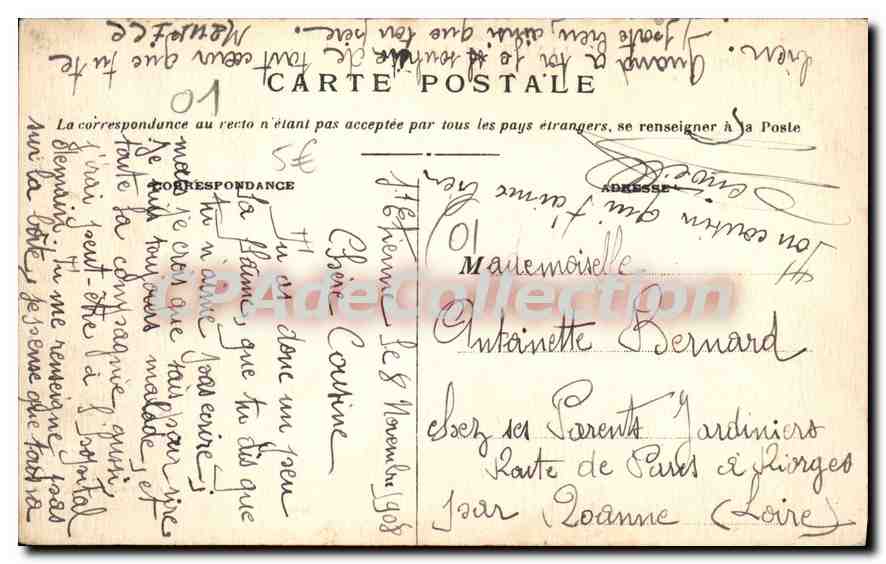 CARTE POSTALE
La correspondance au recto n'étant pas acceptée par tous les pays étrangers, se renseigner à la Poste
CORRESPONDANCE
ADRESSE
St Etienne le 8 Novembre 1908
Chère Cousine
Tu as donc un peu
la flaime, que tu dis que
tu n'aime pas écrire;
mais je crois que tais pour rire
Je suis toujours malade, et
toute la compagnie, aussi
j'irai peut-être à l'hopital
demain. Tu me renseigne pas
sur la boîte, je pense que tout va
bien. Quand à toi je te souhaite de tout cœur que tu te
porte bien, ainsi que ton père.
Maurice
Ton cousin qui t'aime bien
Mademoiselle
Antoinette Bernard
chez ses Parents Jardiniers
Route de Paris à Riorges
par Roanne (Loire)
01
01
5€
CPAdeCollection